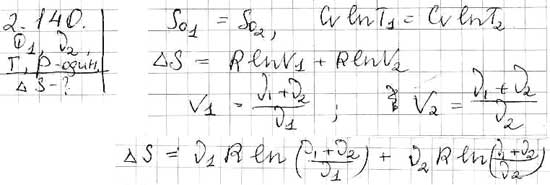 2.140.
ν₁, ν₂,
T, p-один.
ΔS-?
S₀₁ = S₀₂, Cv ln T₁ = Cv ln T₂
ΔS = R ln V₁ + R ln V₂
V₁ = (ν₁+ν₂)/ν₁ ; V₂ = (ν₁+ν₂)/ν₂
ΔS = ν₁ R ln ((ν₁+ν₂)/ν₁) + ν₂ R ln ((ν₁+ν₂)/ν₂)